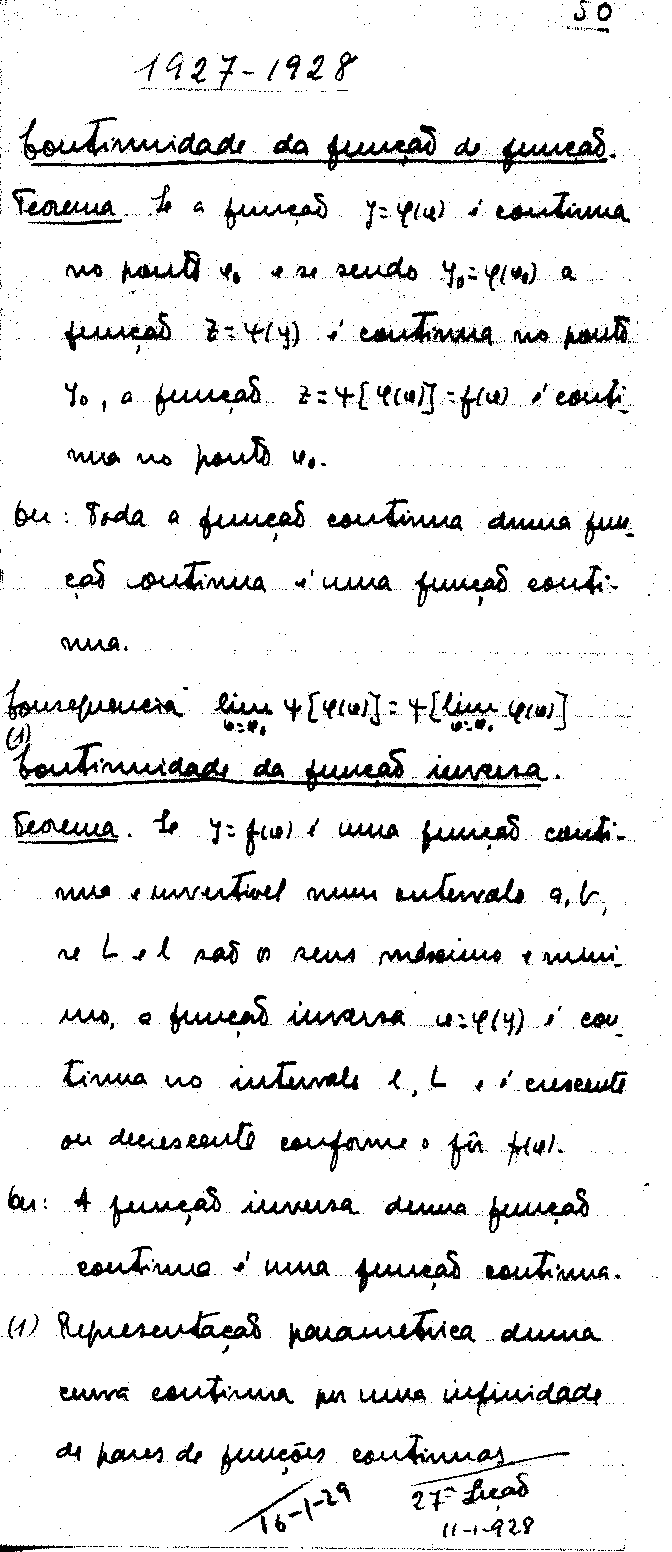 50
1927-1928
Continuidade da função de função.
Teorema Se a função y=φ(x) é continua
no ponto x₀ e se sendo y₀=φ(x₀) a
função z=ψ(y) é continua no ponto
y₀, a função z=ψ[φ(x)]=f(x) é conti-
nua no ponto x₀.
Ou: Toda a função continua duma fun-
ção continua é uma função conti-
nua.
Consequencia lim ψ[φ(x)]=ψ[lim φ(x)]
x=x₀ x=x₀
(1)
Continuidade da função inversa.
Teorema. Se y=f(x) é uma função conti-
nua e invertivel num intervalo a,b,
se L e l são os seus máximo e mini-
mo, a função inversa x=φ(y) é con-
tinua no intervalo l, L e é crescente
ou decrescente conforme o fôr f(x).
Ou: A função inversa duma função
continua é uma função continua.
(1) Representação parametrica duma
curva continua por uma infinidade
de pares de funções continuas
16-1-29
27ª Lição
11-1-928